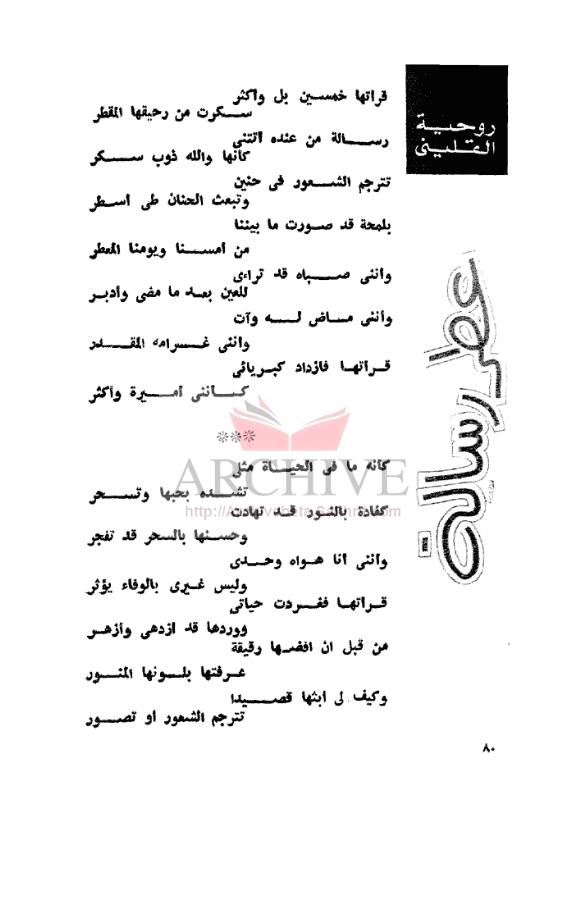 روحية
القلينى
عطر رسالة
قراتها خمسين بل واكثر
سكرت من رحيقها المقطر
رسالة من عنده اتتنى
كانها والله ذوب سكر
تترجم الشعور فى حنين
وتبعث الحنان طى اسطر
بلمحة قد صورت ما بيننا
من امسنا ويومنا المعطر
وانى صباه قد تراءى
للعين بعد ما مضى وأدبر
وأننى ماض له وآت
وانى غرامه المقدر
قراتها فازداد كبريائى
كاننى اميرة واكثر
***
كانه ما فى الحياة مثلى
تشده بحبها وتسحر
كفادة بالنور قد تهادت
وحسنها بالسحر قد تفجر
وانى انا هواه وحدى
وليس غيرى بالوفاء يؤثر
قراتها ففردت حياتى
ووردها قد ازدهى وأزهر
من قبل ان افضها رقيقة
عرفتها بلونها المنور
وكيف لى ابثها قصيدا
تترجم الشعور او تصور
٨٠
ARCHIVE